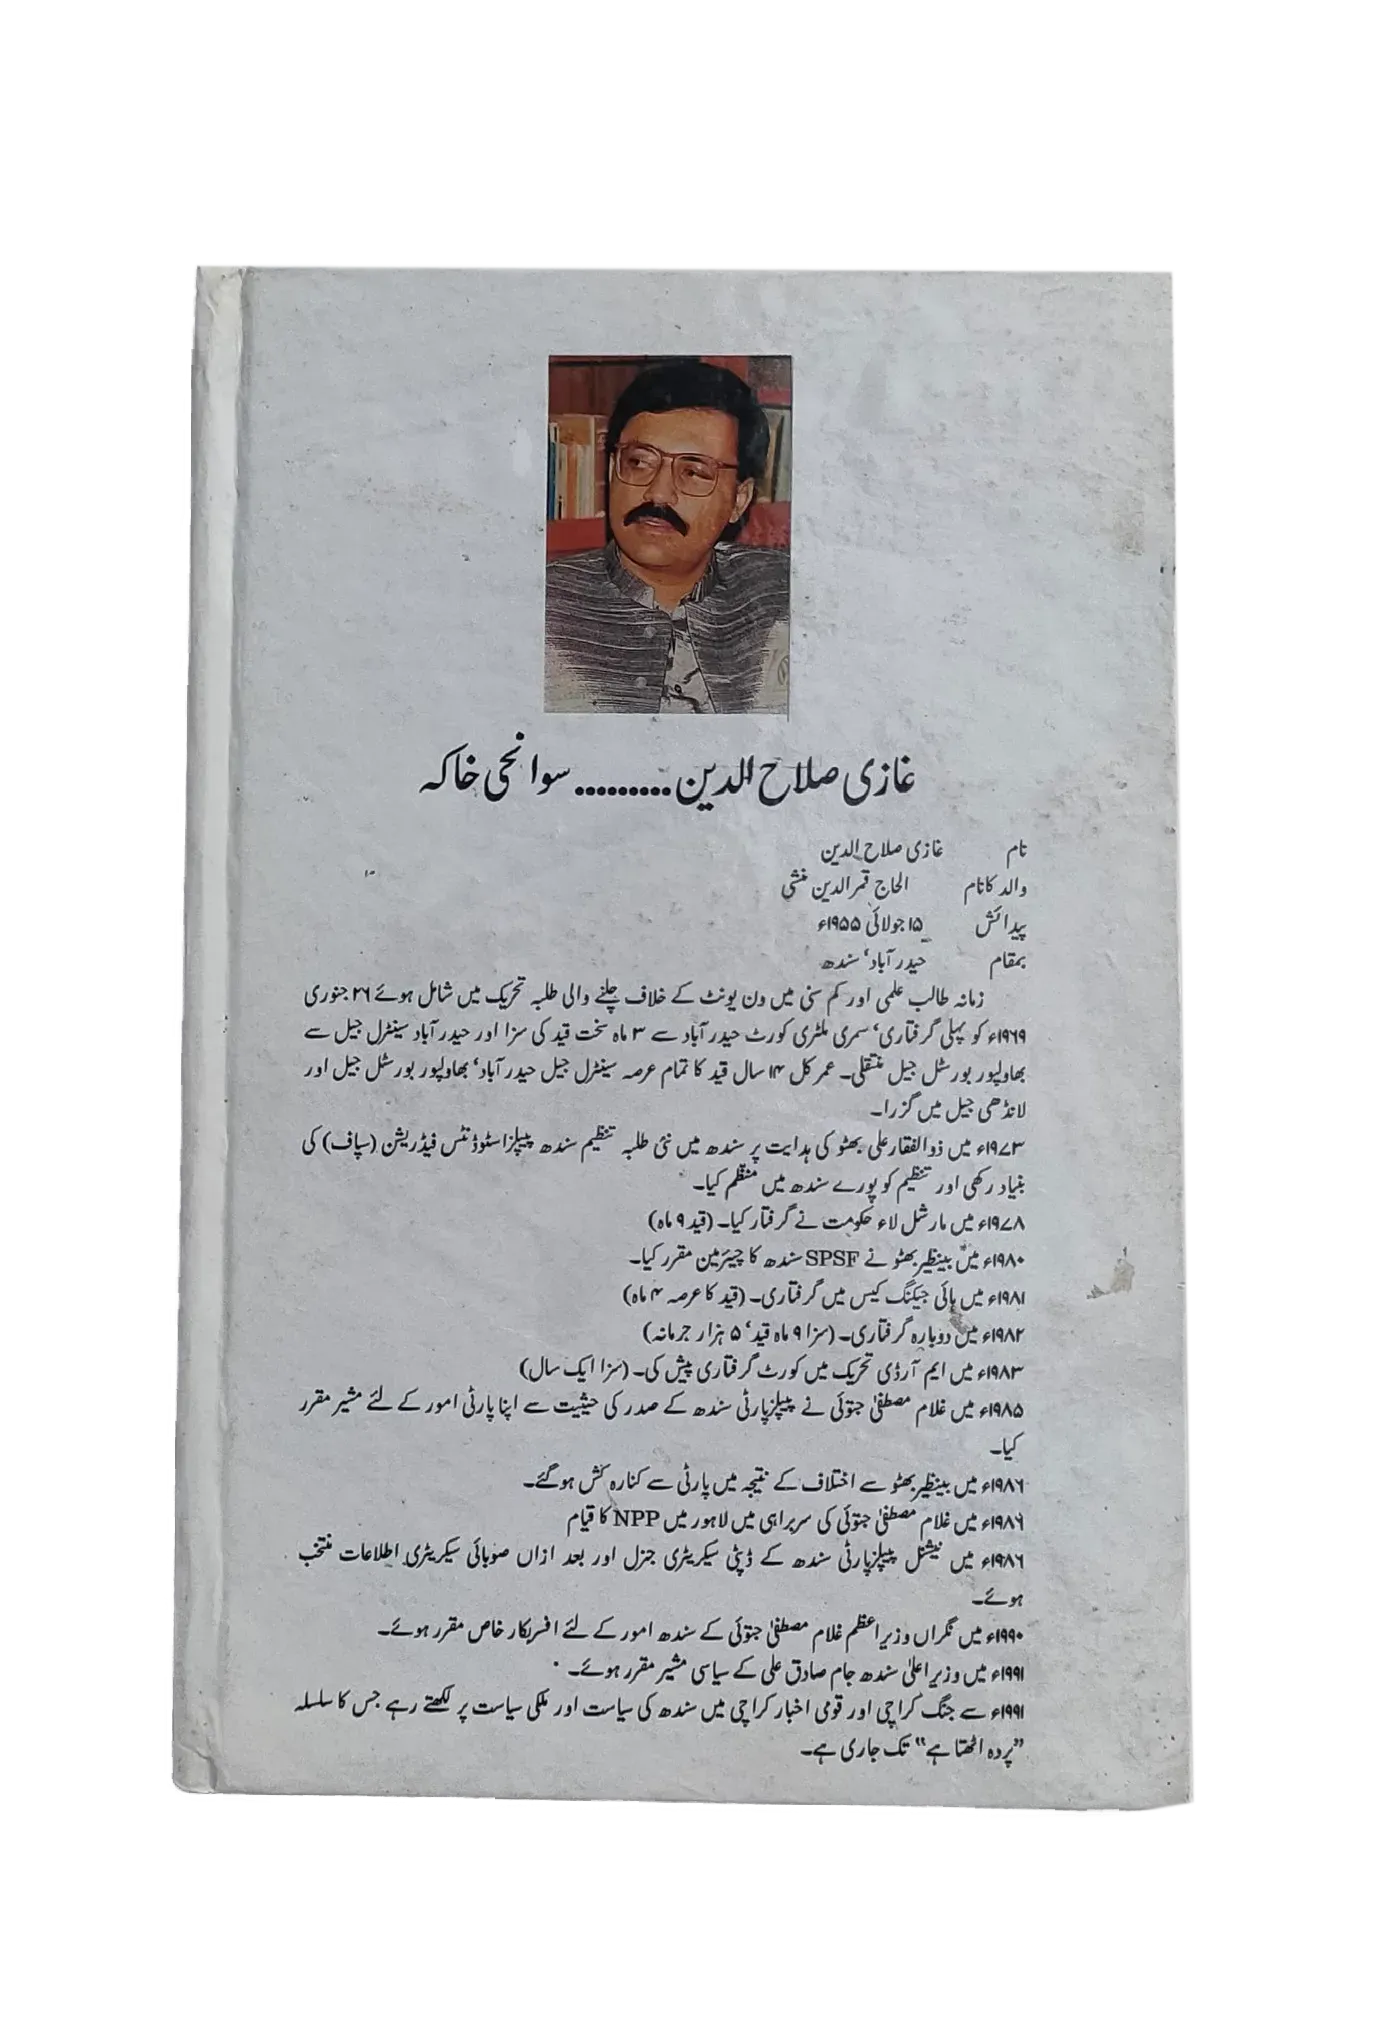 غازی صلاح الدین ......... سوانحی خاکہ
نام غازی صلاح الدین
والد کا نام الحاج قمرالدین منشی
پیدائش ۱۵ جولائی ۱۹۵۵ء
بمقام حیدر آباد‘ سندھ
زمانہ طالب علمی اور کم سنی میں ون یونٹ کے خلاف چلنے والی طلبہ تحریک میں شامل ہوئے ۲۶ جنوری
۱۹۶۹ء کو پہلی گرفتاری‘ سمری ملٹری کورٹ حیدر آباد سے ۳ ماہ سخت قید کی سزا اور حیدر آباد سینٹرل جیل سے
بھاولپور بورسٹل جیل منتقلی۔ عمر کل ۱۴ سال قید کا تمام عرصہ سینٹرل جیل حیدر آباد‘ بھاولپور بورسٹل جیل اور
لانڈھی جیل میں گزرا۔
۱۹۷۳ء میں ذوالفقار علی بھٹو کی ہدایت پر سندھ میں نئی طلبہ تنظیم سندھ پیپلز اسٹوڈنٹس فیڈریشن (سپاف) کی
بنیاد رکھی اور تنظیم کو پورے سندھ میں منظم کیا۔
۱۹۷۸ء میں مارشل لاء حکومت نے گرفتار کیا۔ (قید ۹ ماہ)
۱۹۸۰ء میں بینظیر بھٹو نے SPSF سندھ کا چیئرمین مقرر کیا۔
۱۹۸۱ء میں ہائی جیکنگ کیس میں گرفتاری۔ (قید کا عرصہ ۴ ماہ)
۱۹۸۲ء میں دوبارہ گرفتاری۔ (سزا ۹ ماہ قید‘ ۵ ہزار جرمانہ)
۱۹۸۳ء میں ایم آر ڈی تحریک میں کورٹ گرفتاری پیش کی۔ (سزا ایک سال)
۱۹۸۵ء میں غلام مصطفیٰ جتوئی نے پیپلز پارٹی سندھ کے صدر کی حیثیت سے اپنا پارٹی امور کے لئے مشیر مقرر
کیا۔
۱۹۸۶ء میں بینظیر بھٹو سے اختلاف کے نتیجہ میں پارٹی سے کنارہ کش ہو گئے۔
۱۹۸۶ء میں غلام مصطفیٰ جتوئی کی سربراہی میں لاہور میں NPP کا قیام
۱۹۸۶ء میں نیشنل پیپلز پارٹی سندھ کے ڈپٹی سیکریٹری جنرل اور بعد ازاں صوبائی سیکریٹری اطلاعات منتخب
ہوئے۔
۱۹۹۰ء میں نگراں وزیراعظم غلام مصطفیٰ جتوئی کے سندھ امور کے لئے افسر بکار خاص مقرر ہوئے۔
۱۹۹۱ء میں وزیراعلیٰ سندھ جام صادق علی کے سیاسی مشیر مقرر ہوئے۔
۱۹۹۱ء سے جنگ کراچی اور قومی اخبار کراچی میں سندھ کی سیاست اور ملکی سیاست پر لکھتے رہے جس کا سلسلہ
”پردہ اٹھتا ہے“ تک جاری ہے۔